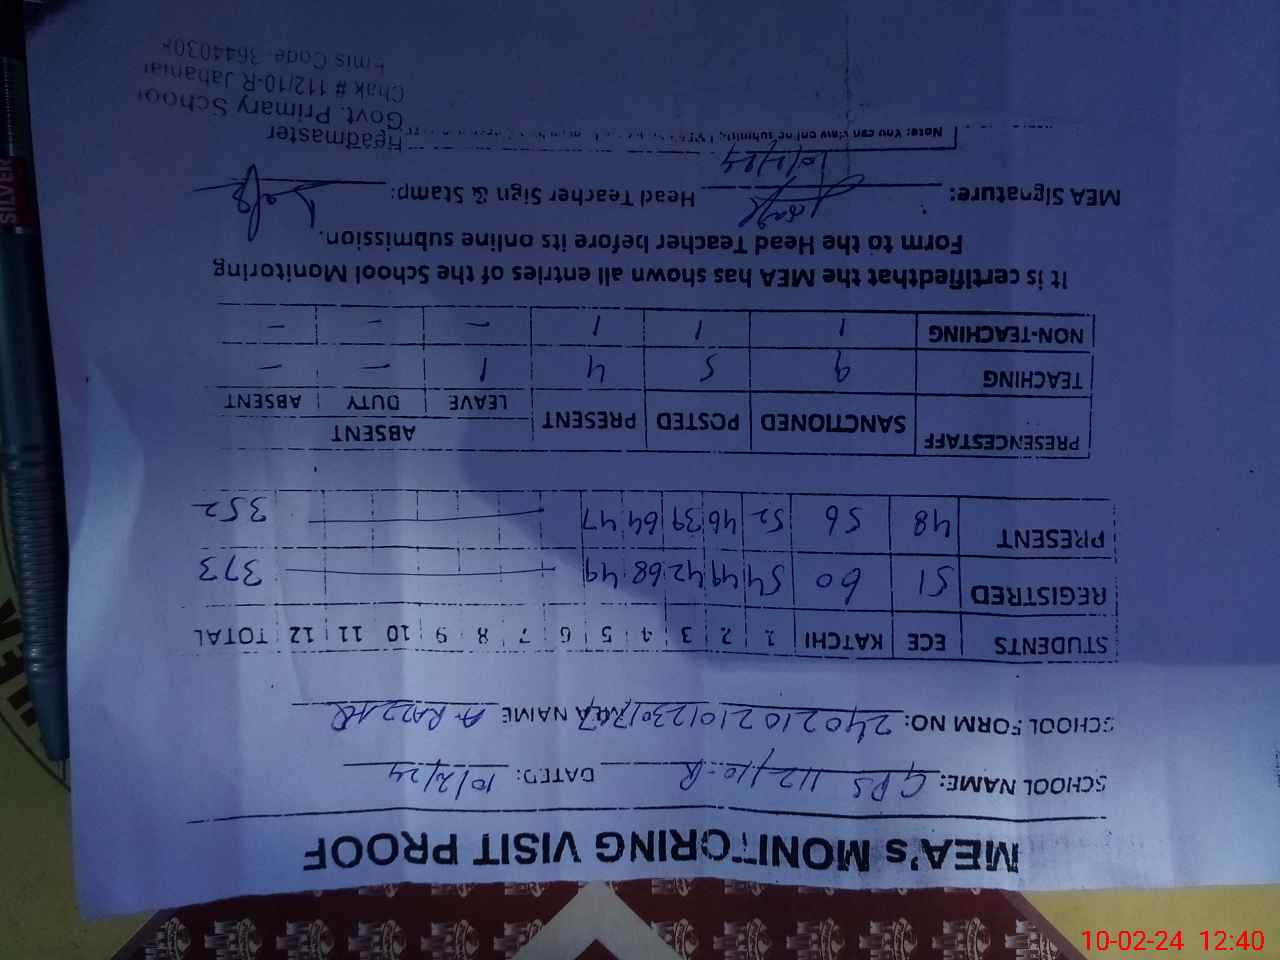 MEA's MONITORING VISIT PROOF
SCHOOL NAME: GPS 112/10-R DATED: 10/2/24
SCHOOL FORM NO: MEA NAME A. RAZZAQ
STUDENTS ECE KATCHI 1 2 3 4 5 6 7 8 9 10 11 12 TOTAL
REGISTRED 51 60 54 49 42 68 49 373
PRESENT 48 56 52 46 39 64 47 352
PRESENCESTAFF SANCTIONED POSTED PRESENT ABSENT
LEAVE DUTY ABSENT
TEACHING 9 5 4 1 - -
NON-TEACHING 1 1 1 - - -
It is certifiedthat the MEA has shown all entries of the School Monitoring
Form to the Head Teacher before its online submission.
MEA Signature: Head Teacher Sign & Stamp:
10/2/24
Note: You can view online submitt
Headmaster
Govt. Primary School
Chak # 112/10-R Jahanian
Emis Code 3644030
SILVER
10-02-24 12:40